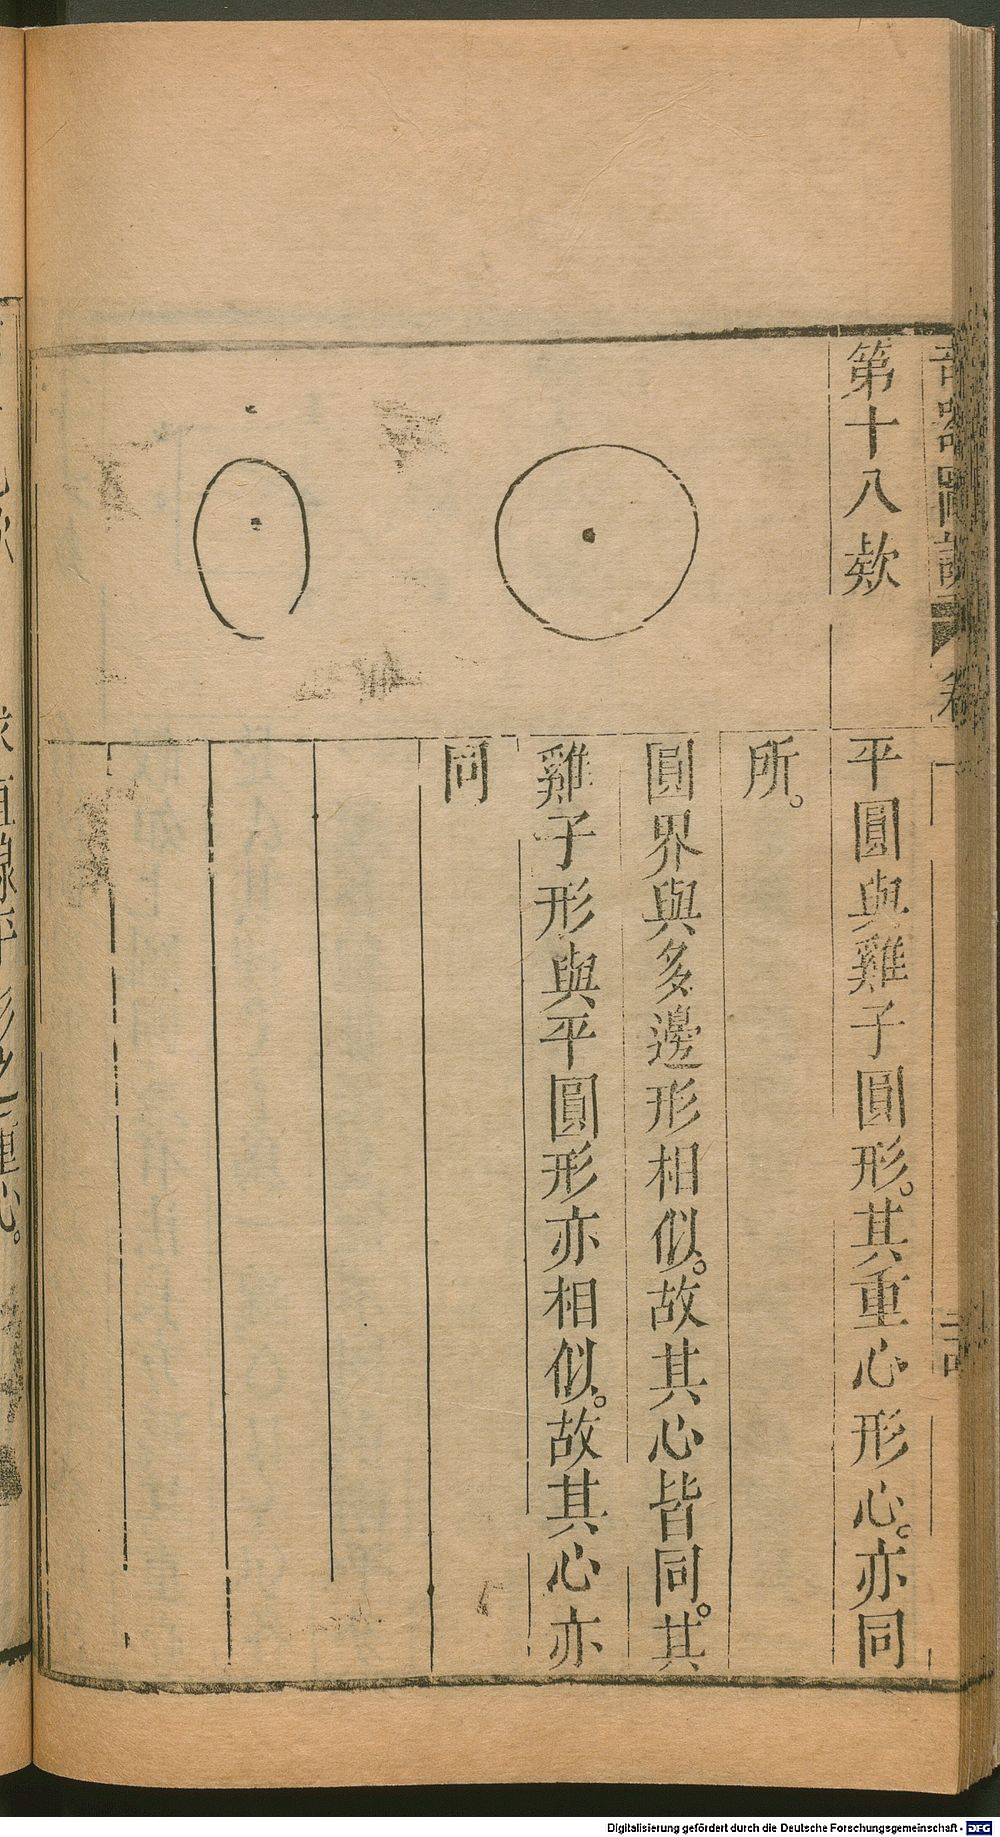 奇器圖說 卷一
第十八款
平圓與雞子圓形。其重心形心。亦同
所。
圓界與多邊形相似。故其心皆同。其
雞子形與平圓形亦相似。故其心亦
同
求直線平形之重心。
Digitalisierung gefördert durch die Deutsche Forschungsgemeinschaft - DFG